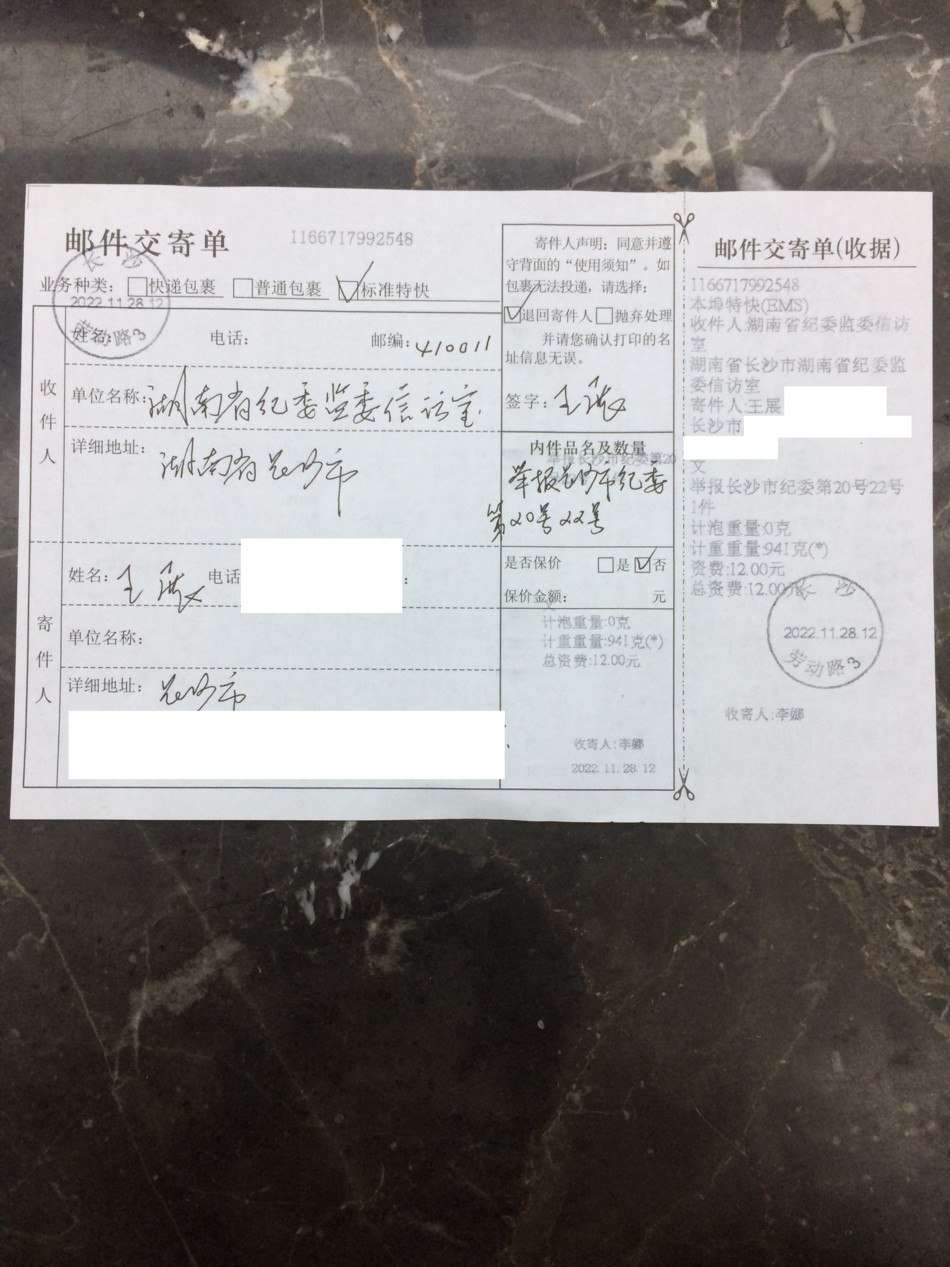 邮件交寄单
1166717992548
业务种类：快递包裹 普通包裹 标准特快
长沙
2022.11.28.12
劳动路3
收件人
姓名： 电话： 邮编：410011
单位名称：湖南省纪委监委信访室
详细地址：湖南省长沙市
寄件人
姓名：王展 电话 ：
单位名称：
详细地址：长沙市
寄件人声明：同意并遵
守背面的“使用须知”。如
包裹无法投递，请选择：
退回寄件人 抛弃处理
并请您确认打印的名
址信息无误。
签字：王展
内件品名及数量
举报长沙市纪委第20
举报长沙市纪委
第20号22号
是否保价 是 否
保价金额： 元
计泡重量:0克
计重重量:941克(*)
总资费:12.00元
收寄人:李娜
2022.11.28.12
邮件交寄单(收据)
1166717992548
本埠特快(EMS)
收件人:湖南省纪委监委信访
室
湖南省长沙市湖南省纪委监
委信访室
寄件人:王展
长沙市
文
举报长沙市纪委第20号22号
1件
计泡重量:0克
计重重量:941克(*)
资费:12.00元
总资费:12.00元
长沙
2022.11.28.12
劳动路3
收寄人:李娜